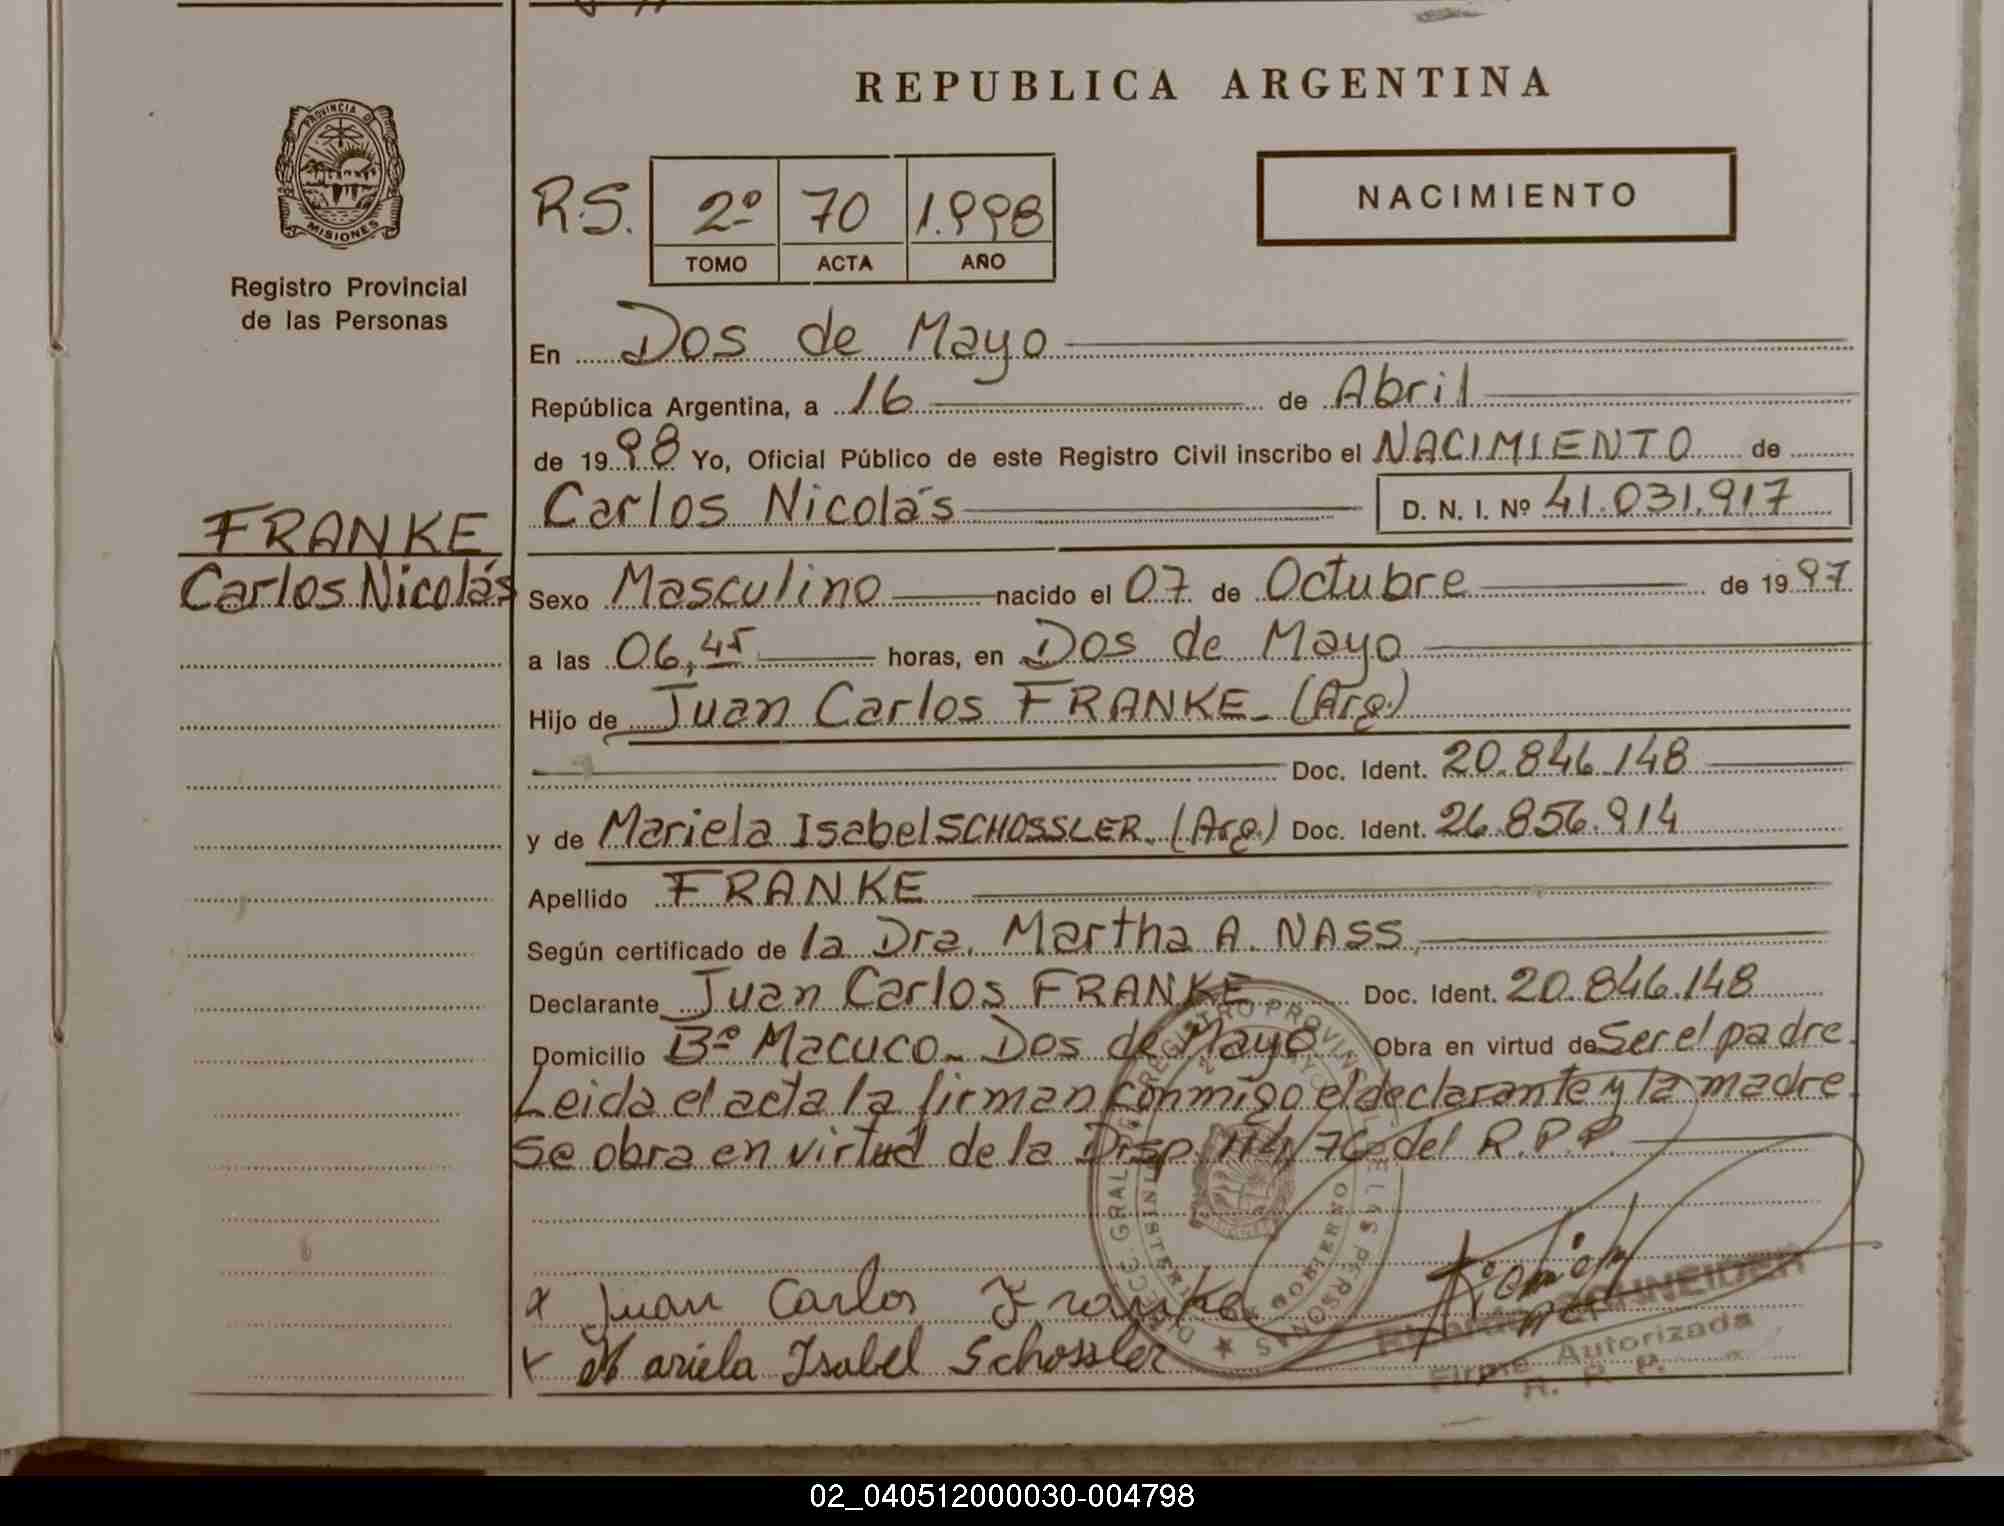 REPUBLICA ARGENTINA
PROVINCIA DE
MISIONES
Registro Provincial
de las Personas
R.S. 2º 70 1.998
TOMO ACTA AÑO
NACIMIENTO
En Dos de Mayo
República Argentina, a 16 de Abril
de 1998 Yo, Oficial Público de este Registro Civil inscribo el NACIMIENTO de
Carlos Nicolás D. N. I. Nº 41.031.917
FRANKE
Carlos Nicolás
Sexo Masculino nacido el 07 de Octubre de 1997
a las 06,45 horas, en Dos de Mayo
Hijo de Juan Carlos FRANKE_ (Arg.)
Doc. Ident. 20.846.148
y de Mariela Isabel SCHOSSLER_ (Arg.) Doc. Ident. 26.856.914
Apellido FRANKE
Según certificado de la Dra. Martha A. NASS
Declarante Juan Carlos FRANKE Doc. Ident. 20.846.148
Domicilio Bº Macuco_ Dos de Mayo Obra en virtud de Ser el padre.
Leida el acta la firman conmigo el declarante y la madre.
Se obra en virtud de la Disp. 114/76 del R.P.P.
x Juan Carlos Franke
x Mariela Isabel Schossler
SCHNEIDER
Firma Autorizada
R. P. P.
02_040512000030-004798